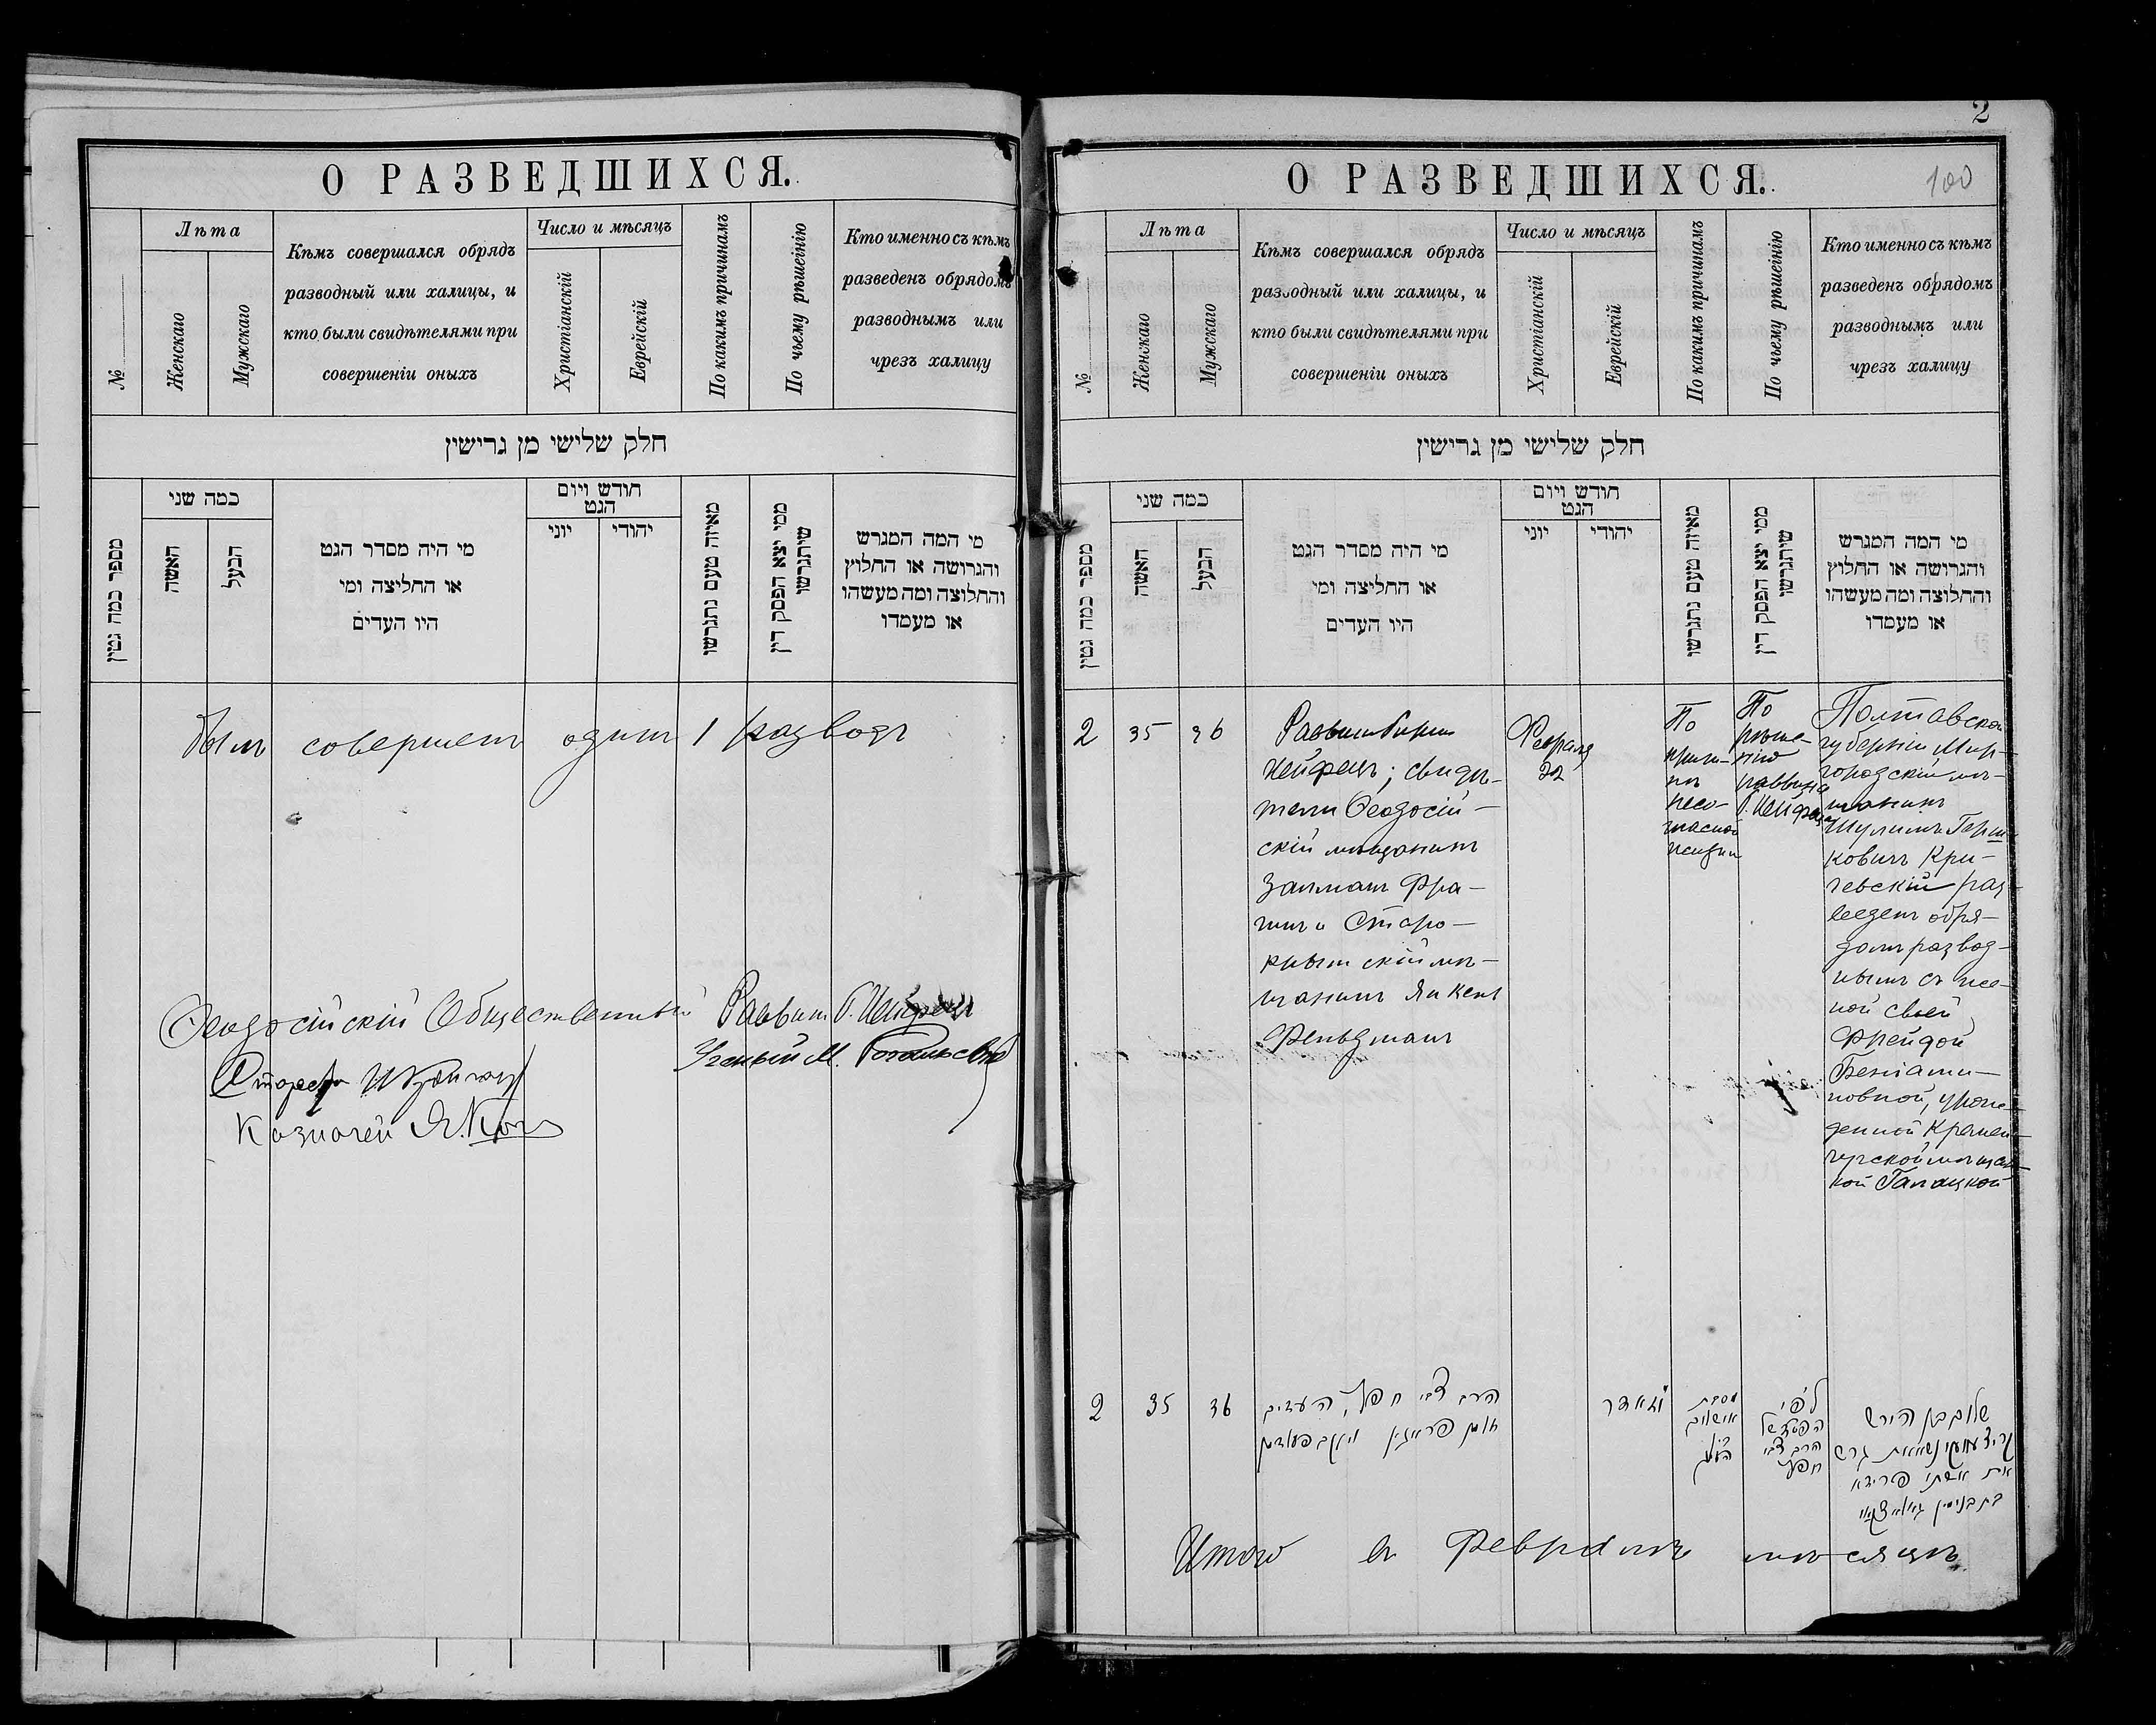 О РАЗВЕДШИХСЯ.
№
Лѣта
Женскаго
Мужскаго
Кѣмъ совершался обрядъ
разводный или халицы, и
кто были свидѣтелями при
совершеніи оныхъ
Число и мѣсяцъ
Христіанскій
Еврейскій
По какимъ причинамъ
По чьему рѣшенію
Кто именно съ кѣмъ
разведенъ обрядомъ
разводнымъ или
чрезъ халицу
חלק שלישי מן גרישין
מספר כמה גטין
כמה שני
האשה
הבעל
מי היה מסדר הגט
או החליצה ומי
היו העדים
חודש ויום
הגט
יוני
יהודי
מאיזה טעם נתגרשו
ממי יצא הפסק דין
שיתגרשו
מי המה המגרש
והגרושה או החלוץ
והחלוצה ומה מעשהו
או מעמדו
былъ совершенъ одинъ 1 разводъ
Ѳеодосійскій Общественный Раввинъ
Ученый М.
Староста
Казначей Я. Коган
2
100
О РАЗВЕДШИХСЯ.
№
Лѣта
Женскаго
Мужскаго
Кѣмъ совершался обрядъ
разводный или халицы, и
кто были свидѣтелями при
совершеніи оныхъ
Число и мѣсяцъ
Христіанскій
Еврейскій
По какимъ причинамъ
По чьему рѣшенію
Кто именно съ кѣмъ
разведенъ обрядомъ
разводнымъ или
чрезъ халицу
חלק שלישי מן גרישין
מספר כמה גטין
כמה שני
האשה
הבעל
מי היה מסדר הגט
או החליצה ומי
היו העדים
חודש ויום
הגט
יוני
יהודי
מאיזה טעם נתגרשו
ממי יצא הפסק דין
שיתגרשו
מי המה המגרש
והגרושה או החלוץ
והחלוצה ומה מעשהו
או מעמדו
2
35
36
Раввинъ
; свидѣ-
тели Ѳеодосій-
скій мѣщанинъ
Залманъ Фра-
и Старо-
крымскій мѣ-
щанинъ
Фельдманъ
Февраля
22
По
причи-
нѣ
несо-
гласной
жизни
По
рѣше-
нію
раввина
Полтавской
губерніи, Мир-
городскій мѣ-
щанинъ
Шулимъ Герш-
ковичъ Кри-
чевскій раз-
веденъ обря-
домъ развод-
нымъ съ же-
ной своей
Фрейдой
Беніами-
новной, урож-
денной Кремен-
чугской мѣщан-
кой Галацкой
2
35
36
הרב צבי חפץ, העדים
אדר
מסבת
לפי
הרב צבי
חפץ
שלום בן הירש
גרש
את אשתו פרידא
בת בנימין
Итого въ Февралѣ мѣсяцѣ